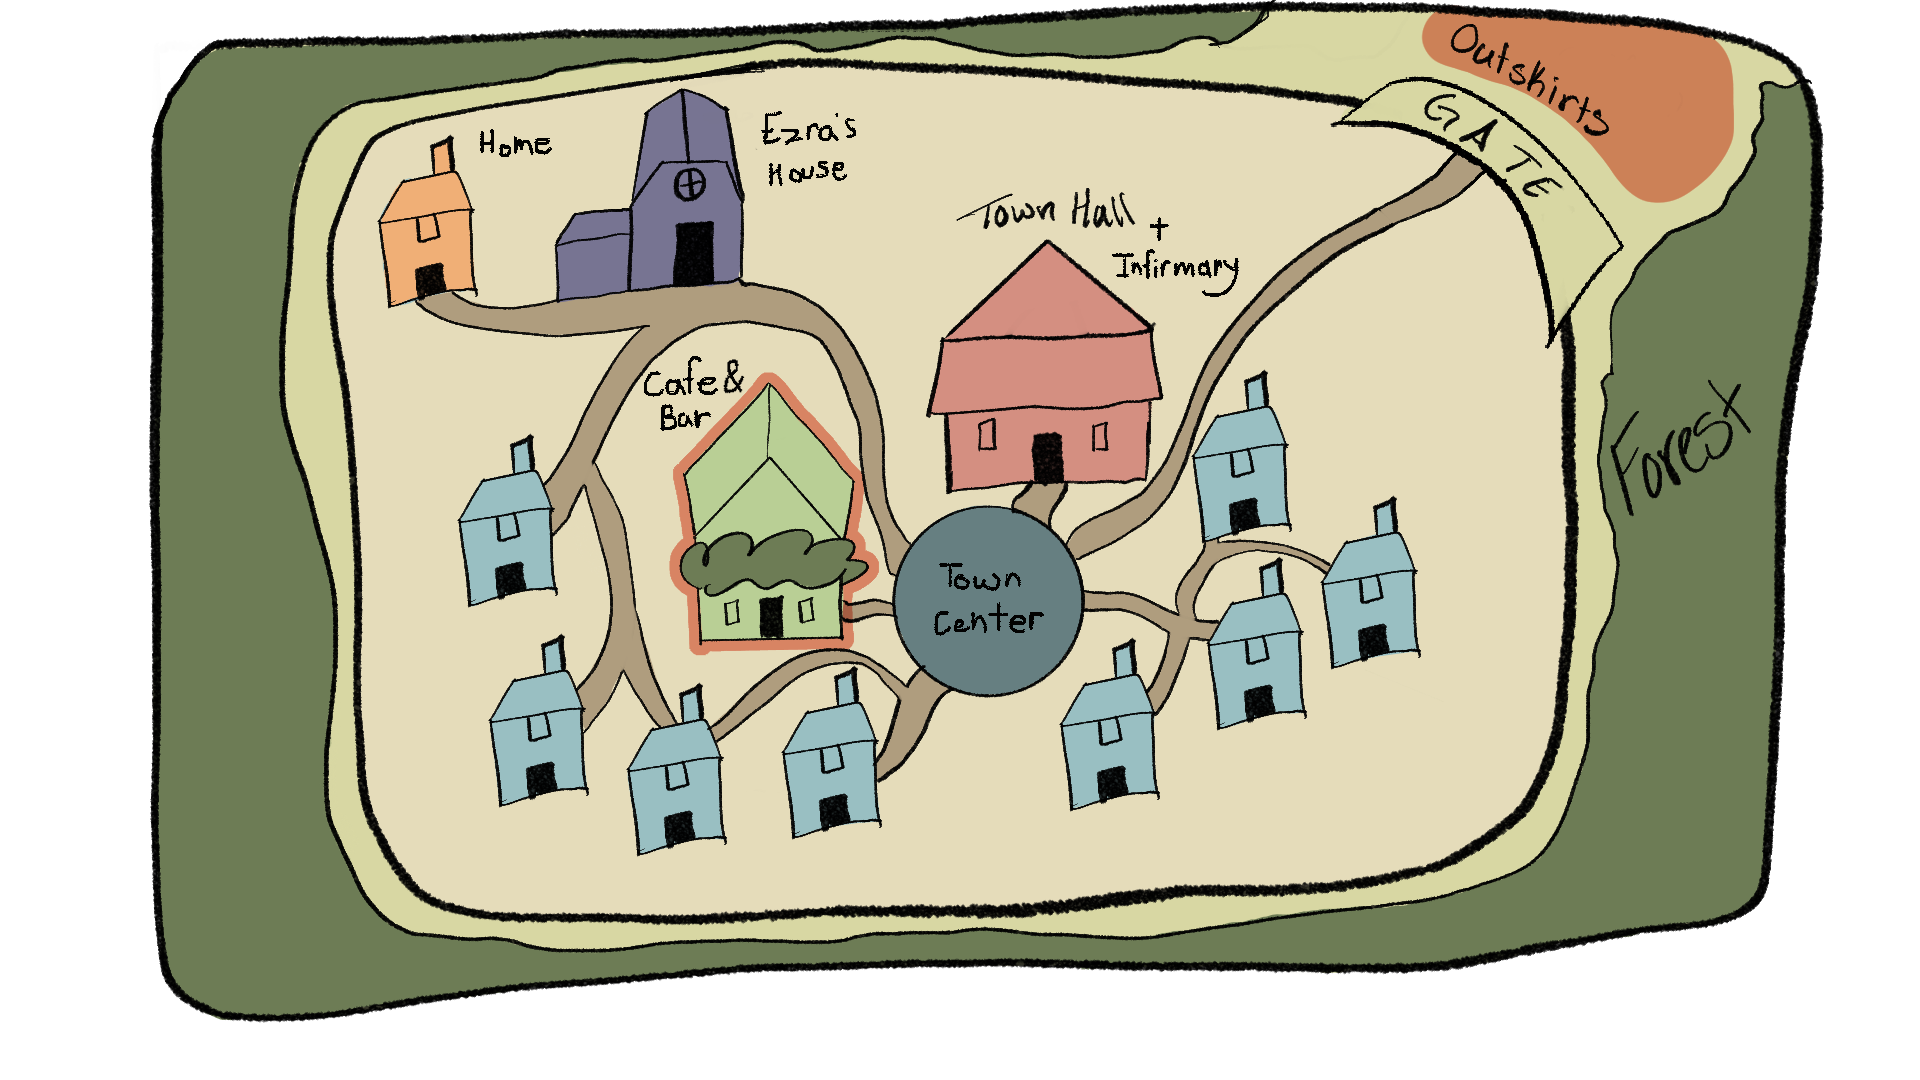 Outskirts
GATE
Home
Ezra's
House
Town Hall
+
Infirmary
Cafe &
Bar
Forest
Town
Center